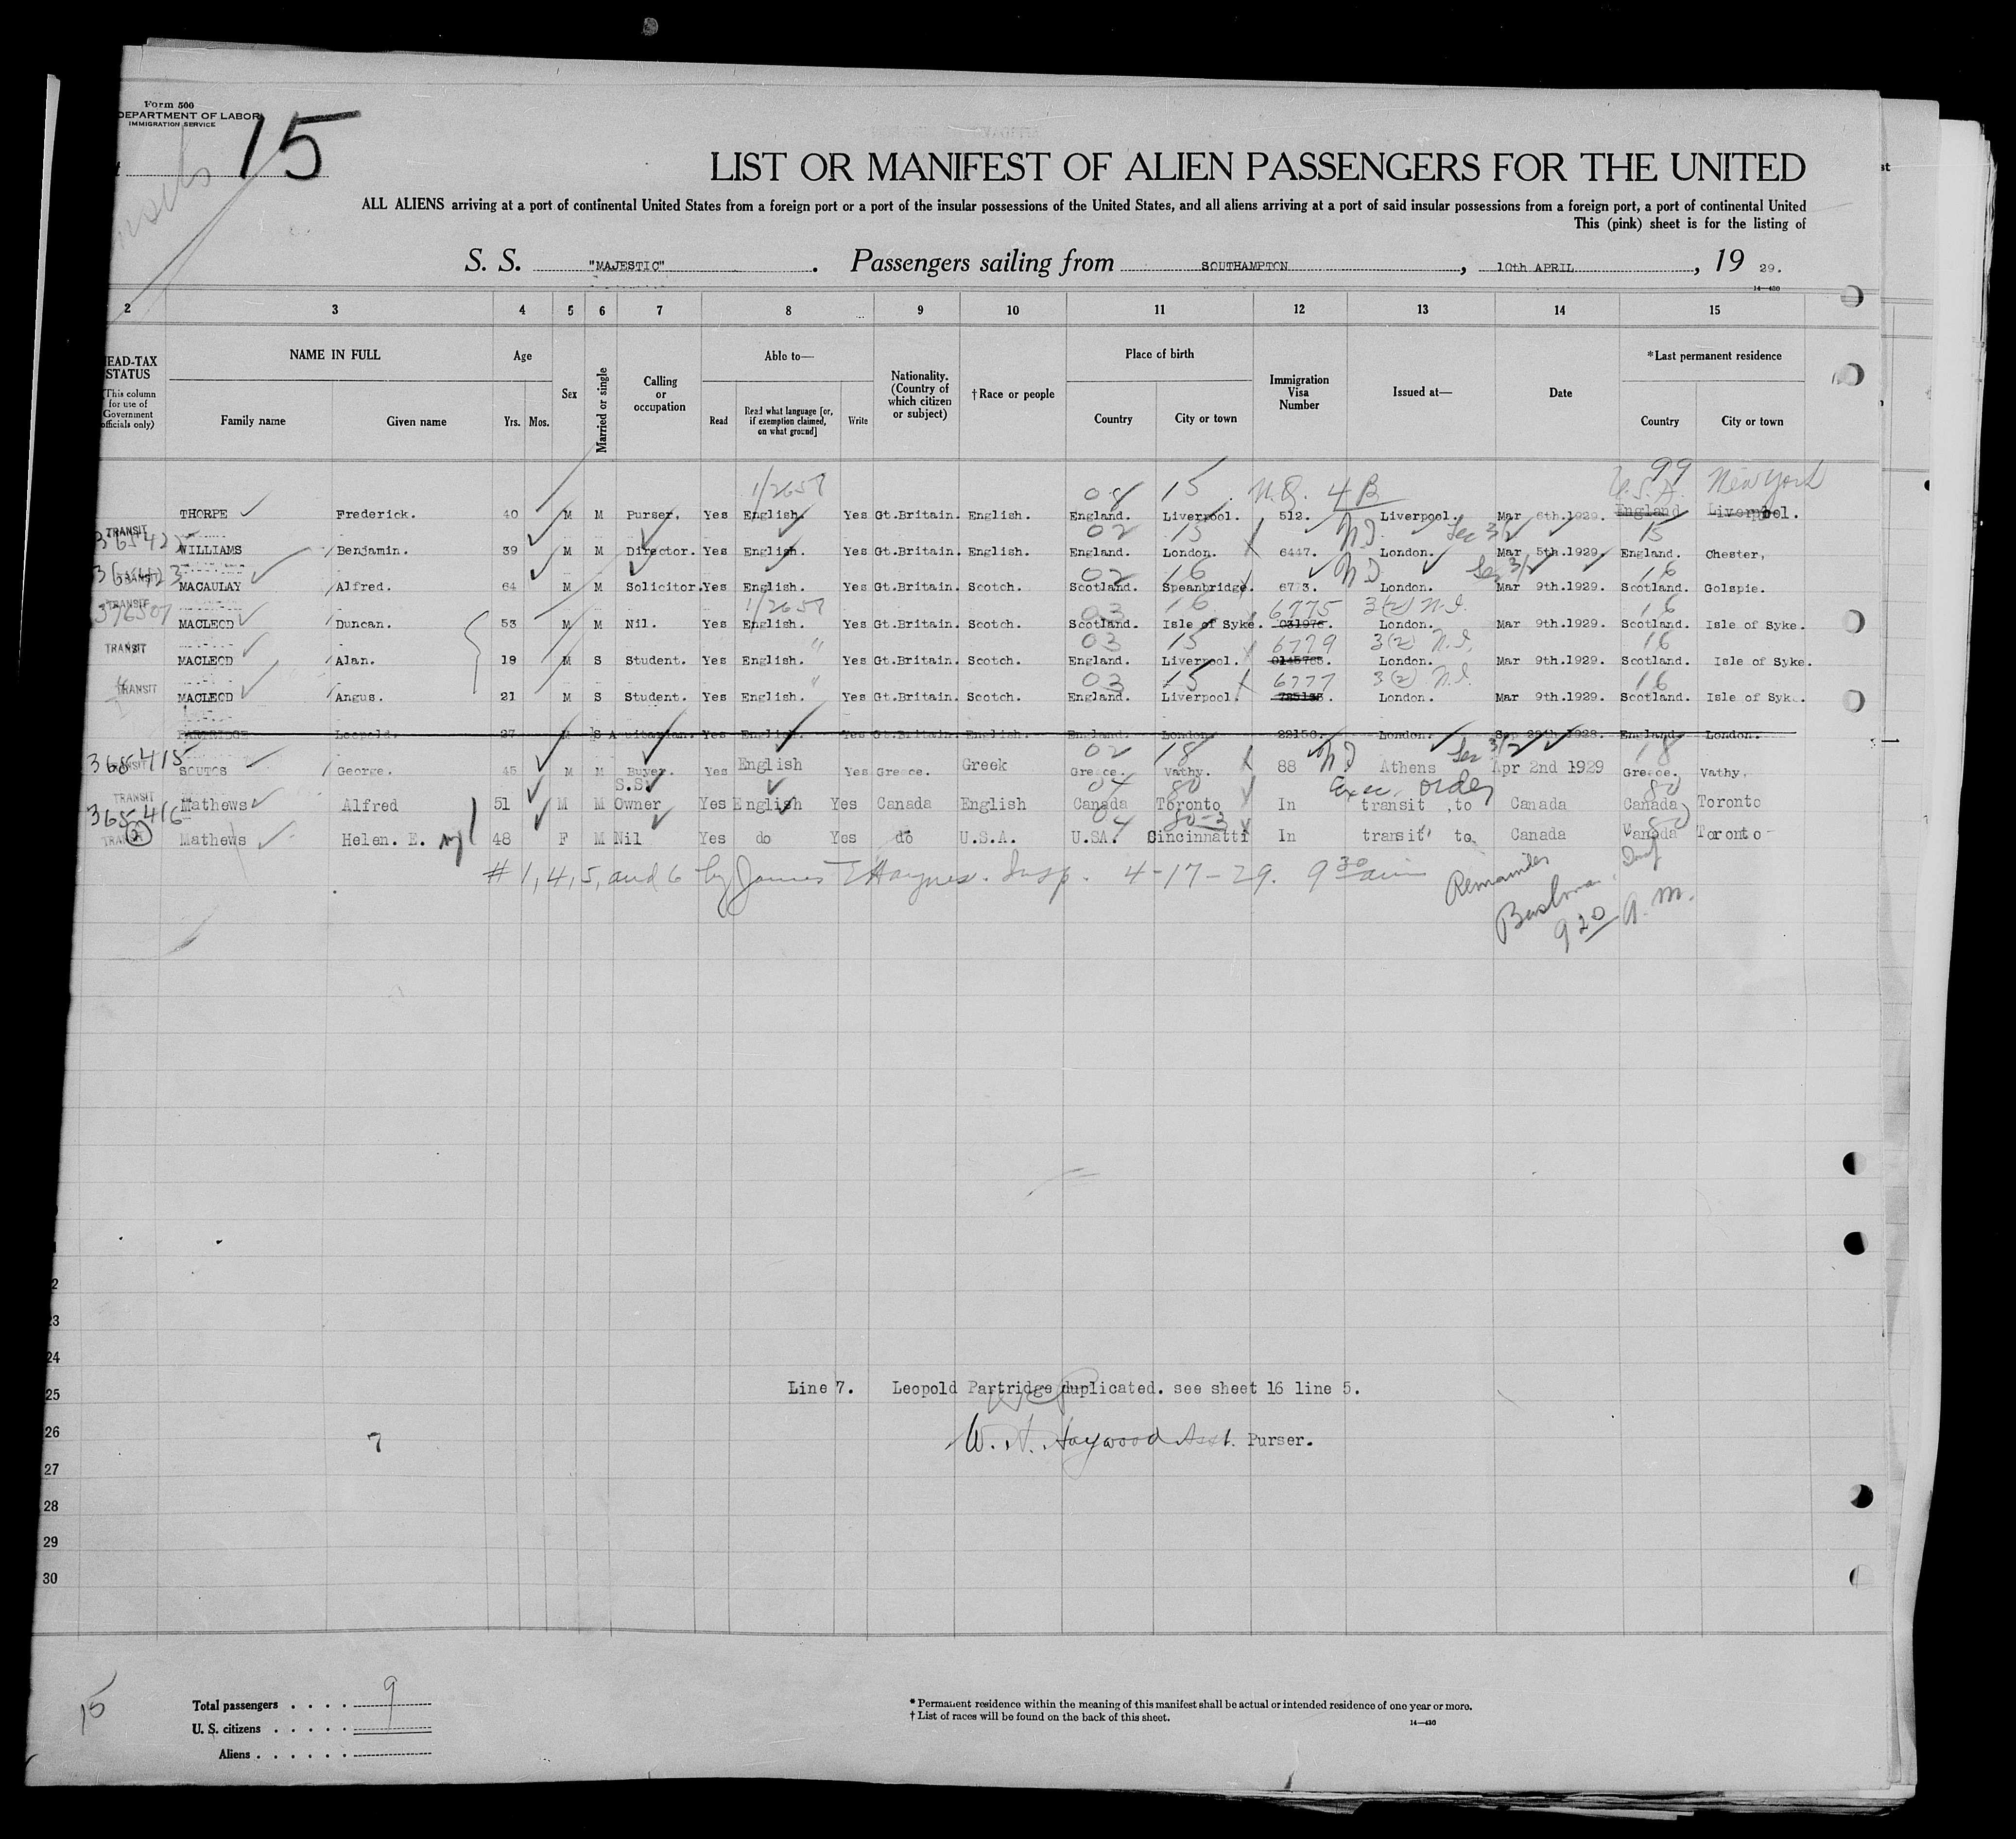 Form 500
DEPARTMENT OF LABOR
IMMIGRATION SERVICE
15
LIST OR MANIFEST OF ALIEN PASSENGERS FOR THE UNITED
ALL ALIENS arriving at a port of continental United States from a foreign port or a port of the insular possessions of the United States, and all aliens arriving at a port of said insular possessions from a foreign port, a port of continental United
This (pink) sheet is for the listing of
S. S. "MAJESTIC". Passengers sailing from SOUTHAMPTON, 10th APRIL, 19 29.
14—430
2 3 4 5 6 7 8 9 10 11 12 13 14 15
HEAD-TAX STATUS (This column for use of Government officials only)
NAME IN FULL Family name Given name
Age Yrs. Mos.
Sex
Married or single
Calling or occupation
Able to— Read Read what language [or, if exemption claimed, on what ground] Write
Nationality. (Country of which citizen or subject)
†Race or people
Place of birth Country City or town
Immigration Visa Number
Issued at—
Date
*Last permanent residence Country City or town
1/2657 08 15 N.Q. 4B 99 U.S.A. New York
THORPE Frederick. 40 M M Purser. Yes English. Yes Gt.Britain. English. England. Liverpool. 512. Liverpool. Mar 6th.1929. England Liverpool.
TRANSIT 02 15 N.I. Sec 3/2 15
WILLIAMS Benjamin. 39 M M Director. Yes English. Yes Gt.Britain. English. England. London. 6447. London. Mar 5th.1929 England. Chester,
02 16 N.I. Sec 3/2 16
MACAULAY Alfred. 64 M M Solicitor. Yes English. Yes Gt.Britain. Scotch. Scotland. Speanbridge. 6773. London. Mar 9th.1929. Scotland. Golspie.
TRANSIT 376507 1/2657 03 16 6775 3(2) N.I. 16
MACLEOD Duncan. 53 M M Nil. Yes English. Yes Gt.Britain. Scotch. Scotland. Isle of Syke. 031976. London. Mar 9th.1929. Scotland. Isle of Syke.
TRANSIT " 03 15 6779 3(2) N.I. 16
MACLEOD Alan. 19 M S Student. Yes English. Yes Gt.Britain. Scotch. England. Liverpool. London. Mar 9th.1929. Scotland. Isle of Syke.
TRANSIT " 03 15 6777 3(2) N.I. 16
MACLEOD Angus. 21 M S Student. Yes English. Yes Gt.Britain. Scotch. England. Liverpool. London. Mar 9th.1929. Scotland. Isle of Syke.
PARTRIDGE Leopold. 27 M S Yes English. Yes Gt.Britain. English. England. London. 22150. London. Sep 28th.1928. England. London.
365415 02 18 N.I. Sec 3/2 18
SOUTOS George. 45 M M Buyer. Yes English Yes Greece. Greek Greece. Vathy. 88 Athens Apr 2nd 1929 Greece. Vathy.
TRANSIT S.S. 04 80 Exec. order 80
365416 Mathews Alfred 51 M M Owner Yes English Yes Canada English Canada Toronto In transit to Canada Canada Toronto
04 80-3 80
(2) Mathews Helen. E. 48 F M Nil Yes do Yes do U.S.A. U.SA. Cincinnatti In transit to Canada Canada Toronto
# 1, 4, 5, and 6 by James T Haynes. Insp. 4-17-29. 9 30 am
Remainder
9 20 A.M.
23
24
25 Line 7. Leopold Partridge duplicated. see sheet 16 line 5.
26 7 W. H. Haywood Asst. Purser.
27
28
29
30
15
Total passengers . . . . 9
U. S. citizens . . . . .
Aliens . . . . . .
* Permanent residence within the meaning of this manifest shall be actual or intended residence of one year or more.
† List of races will be found on the back of this sheet.
14—430